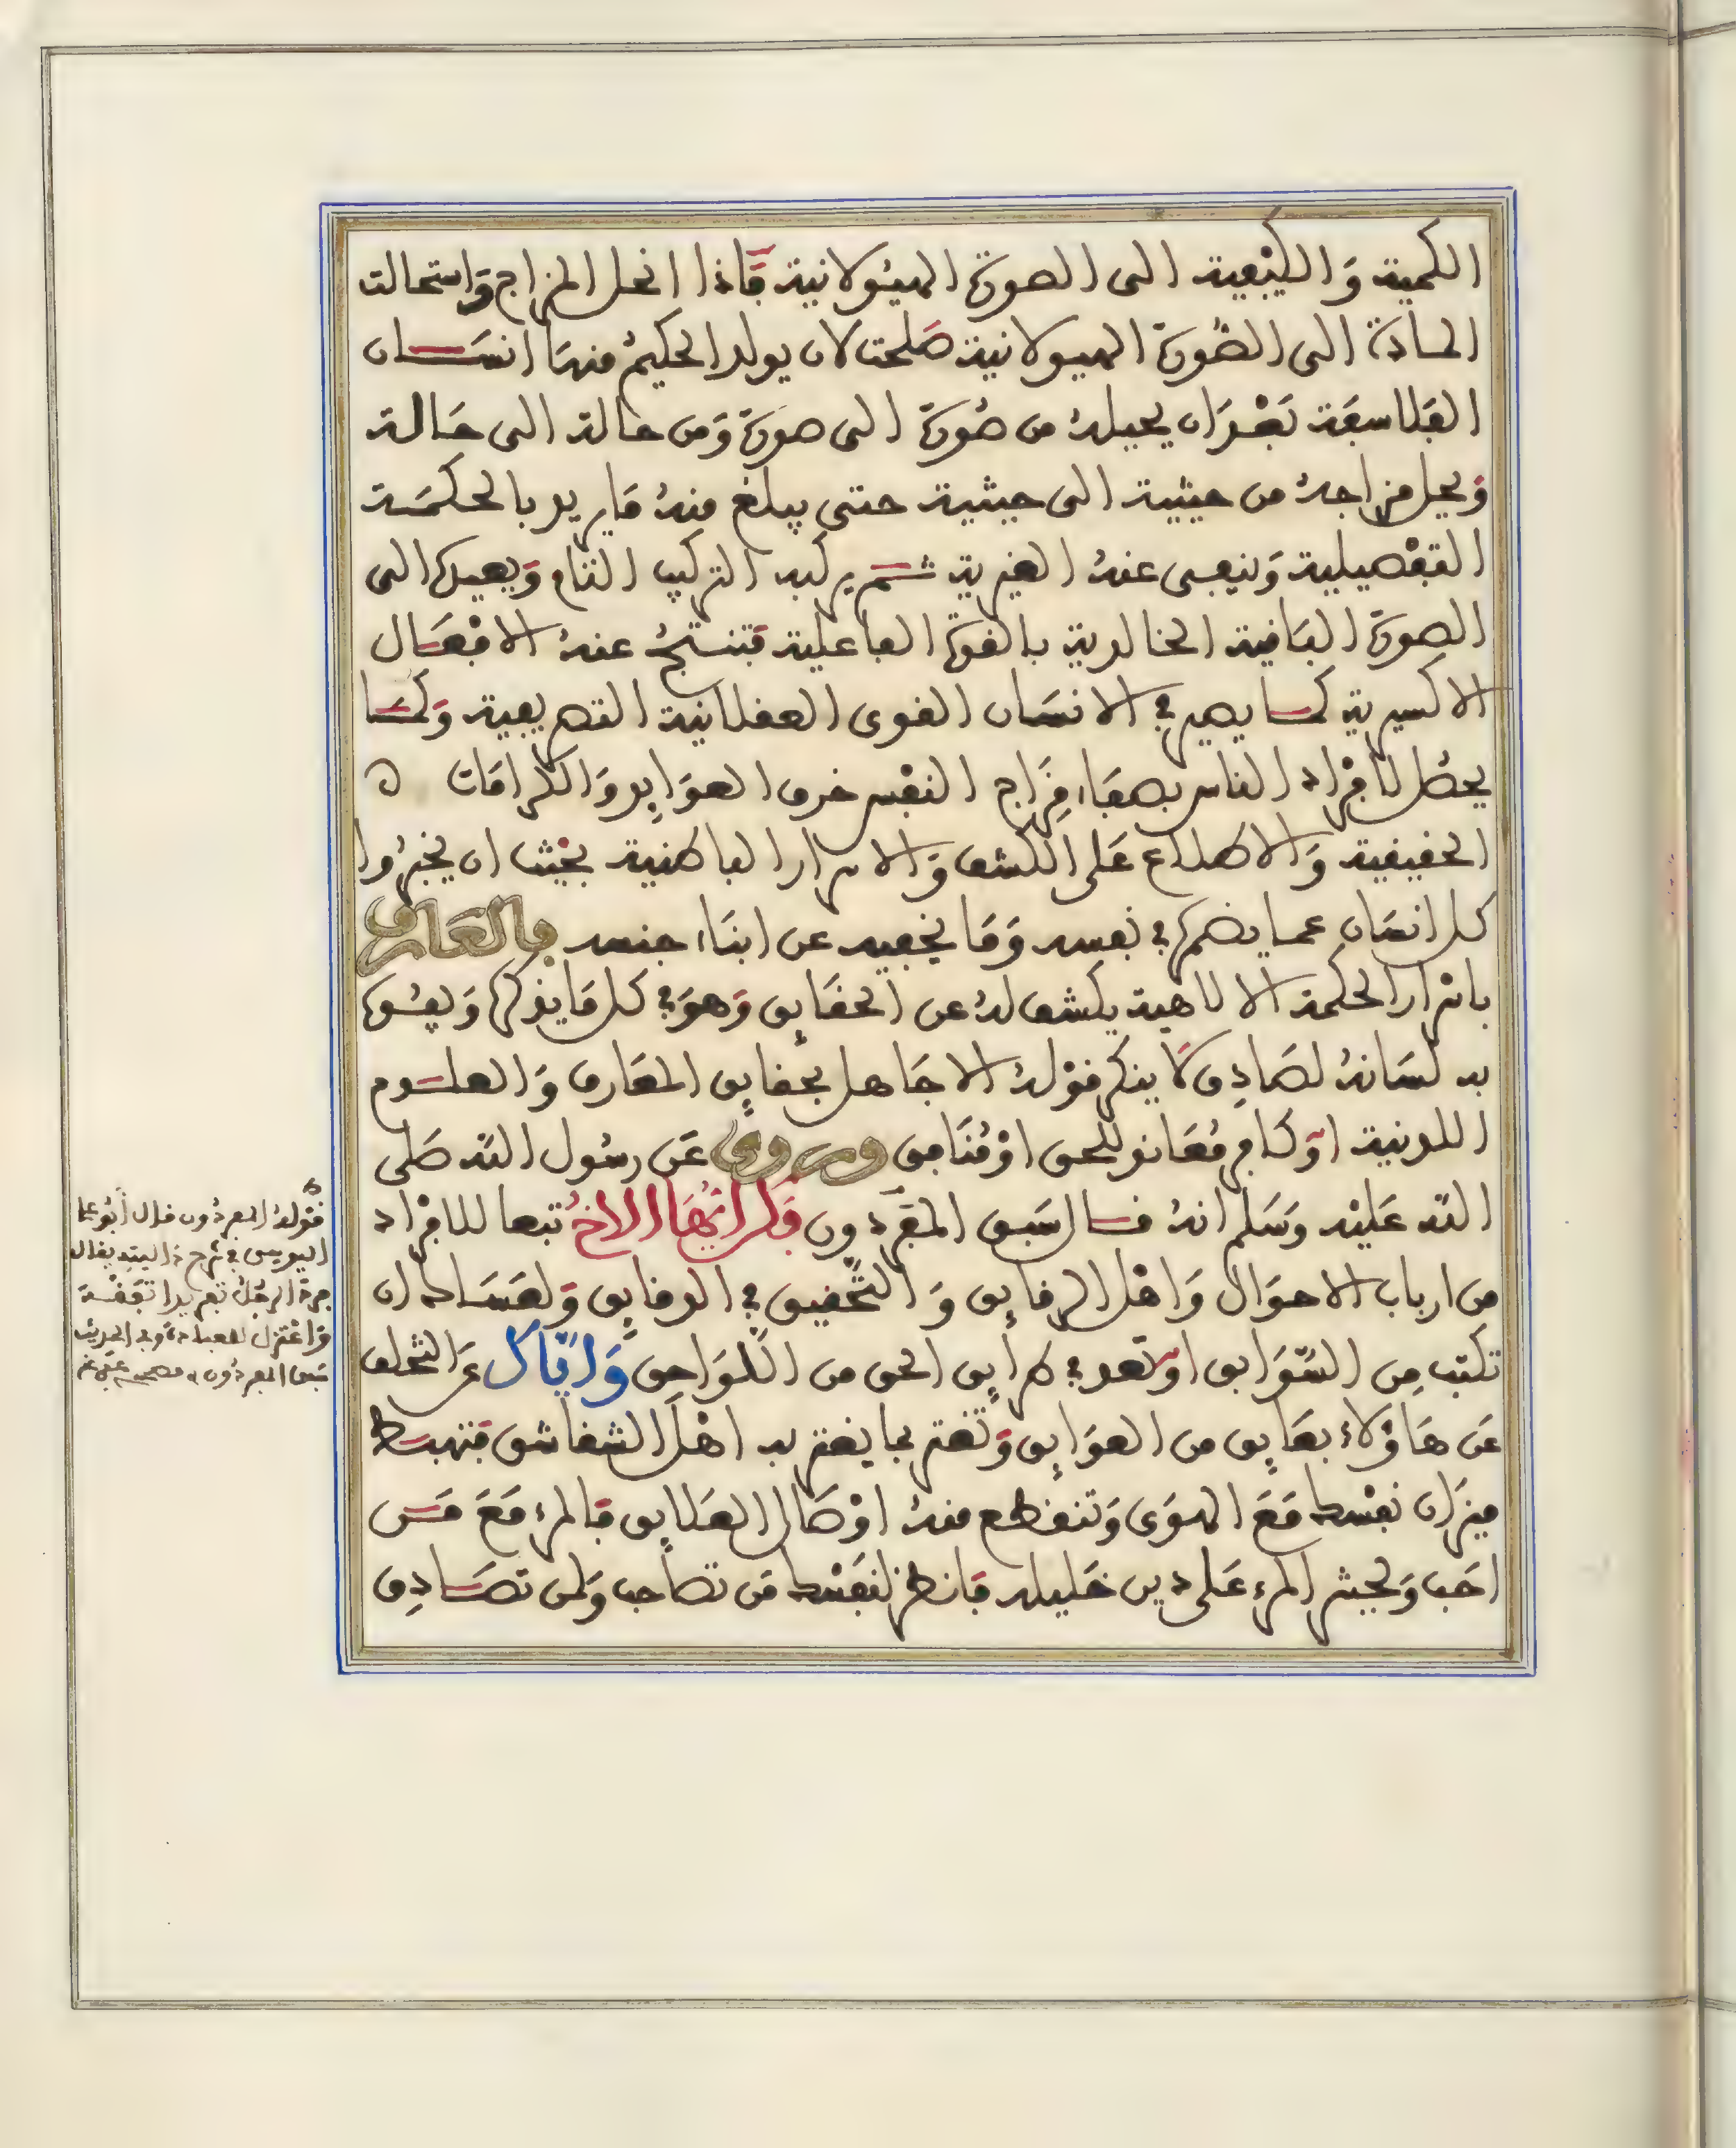 الكمية وَالكيْفية الى الصورة الهيُولانية فَاذا انحل المزاج وَاستحالت
المادة الى الصُورة الهيولانية صَلحت لان يولد الحكيمُ منهَا انسَان
الفلاسفَة بَعْدَ ان يحيلهُ من صُورة الى صورة وَمن حالة الى حَالة
وَيحل مزاجهُ من حيثية الى حيثية حتى يبلغ منهُ مَا يريد بالحكمَة
التفْصيلية وَينفى عنهُ الغيرية ثم يركبه التركيب التام وَيعيده الى
الصورة البَاقية الخالدية بالقوة الفاعلية فتنتجُ عنهُ الافْعَال
الاكسيرية كما يصير في الانسَان القوى العقلانية التصريفية وَكمَا
يحصُل لافْراد الناس بصفَاء مِزَاج النفْس خرق العوَايِد وَالكرامَات
الحقيقية وَالاطلاع عَلى الكشف وَالاسرار الباطنية بحيْث ان يخبرُوا
كل انسَان عما يضمره في نفسه وَمَا يخفيه عن ابنَاء جنسه فالعَارف
باسْرار الحكمة الالاهية يكشف لهُ عن الحقَايق وَهوَ في كل مَا يذكره وَيفُوه
به لسَانهُ لصَادِق لَا ينكر قوْلهُ الا جَاهل بحقايق المعَارف وَالعلوم
اللدنية اوْ كافر مُعَاند للحق اوْ مُنَافق وروى عَن رسُول الله صَلى
الله عَليْه وَسَلم انهُ قال سَبق المفَردون فكن ايُّهَا الاخُ تبعا للافْراد
من ارباب الاحوَال وَاهْل الرقايق وَالتحْقيق في الدقايق وَلعَسَاك ان
تكتب مِن السَّوَابق اوْ تعد في طرايق الحق من اللَّوَاحِق وَايَّاك عَن التخلف
عَن هَاؤلَاء بعَايق من العوَايق وَتغْتر بما يغتر به اهْل الشقاشق فتهبط
ميزان نفْسك مَعَ الهوَى وَتنقطع منهُ اوْصَال العَلايق فَالمرء مَعَ مَن
احَب وَيحْشر المرء عَلى دين خَليله فَانظر لنفْسك مَن تصَاحب وَلمن تصَادِق
قوْلهُ المفردُون قال أبُو علي
اليوسي في شرح داليته يقال
فرد الرجُلُ تفريدا تَفَقَّهَ
وَاعْتزل للعبادة وفي الحديث
سَبق المفردُون